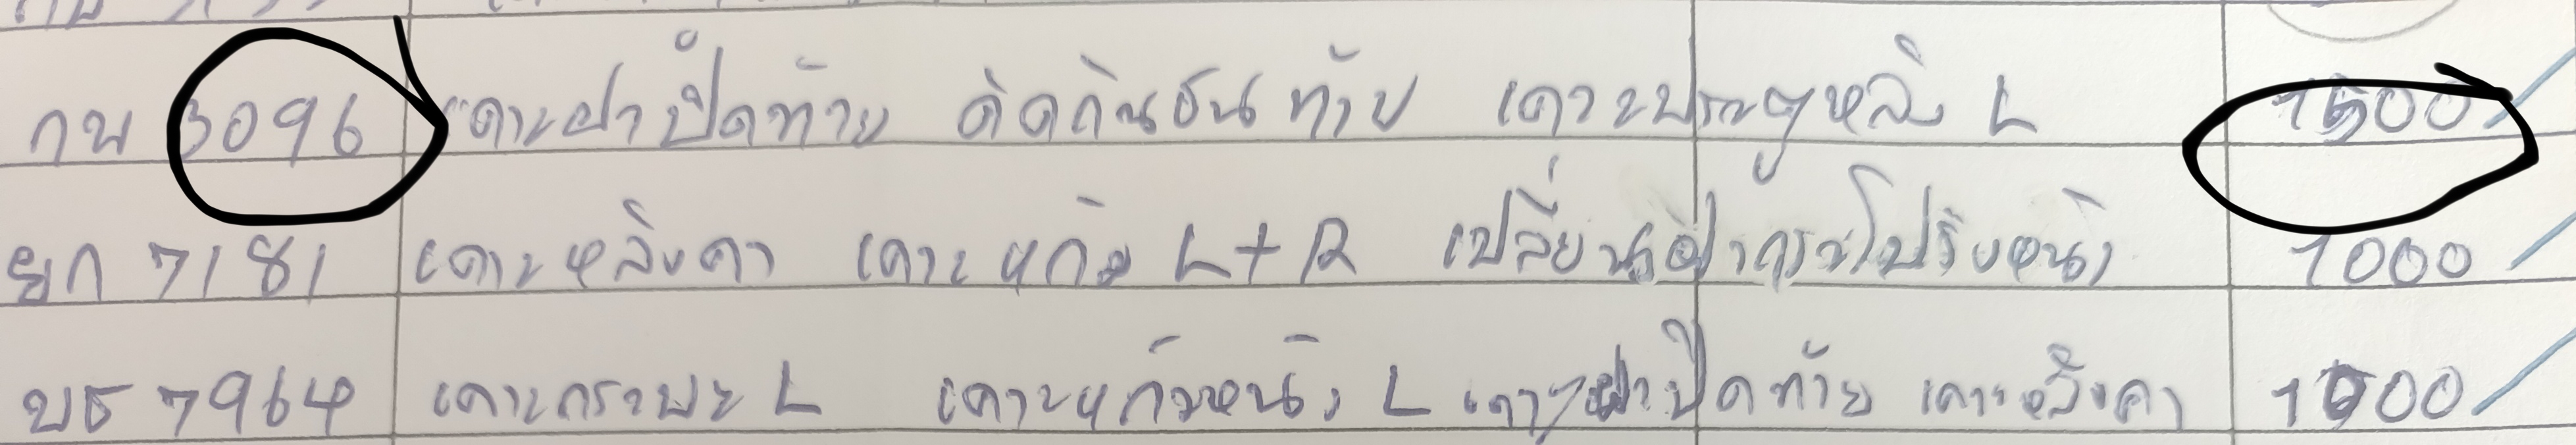 กพ 3096 เคาะฝาปิดท้าย ดัดกันชนท้าย เคาะประตูหลัง L 1500
ยก 7181 เคาะหลังคา เคาะแก้ม L+R เปลี่ยนฝากระโปรงหน้า 1000
บธ 7964 เคาะกระบะ L เคาะแก้มหน้า L เคาะฝาปิดท้าย เคาะหลังคา